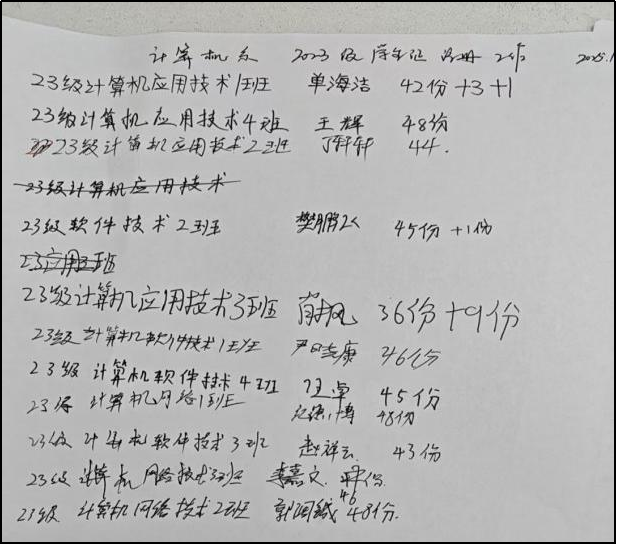 计算机系 2023级学生证 名册 2025.1
23级计算机应用技术1班 单海洁 42份+3+1
23级计算机应用技术4班 王辉 48份
23级计算机应用技术2班 丁轩轩 44.
23级计算机应用技术
23级软件技术2班 樊鹏飞 45份+1份
23应用3班
23级计算机应用技术3班 肖楓 36份+9份
23级计算机软件技术1班 康 46份
23级计算机软件技术4班 汪卓 45份
23级计算机网络1班 博 48份
23级计算机软件技术3班 赵祥云 43份
23级计算机网络技术3班 李嘉文 46份
23级计算机网络技术2班 郭润 48份.